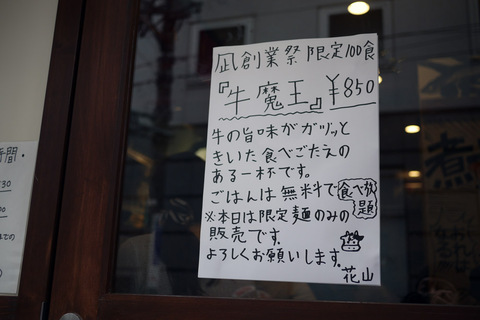 凪創業祭 限定100食
『牛魔王』¥850
牛の旨味がガツッと
きいた食べごたえの
ある一杯です。
ごはんは無料で食べ放題
※本日は限定麺のみの
販売です。
よろしくお願いします。
花山
時間.
30
00
煮